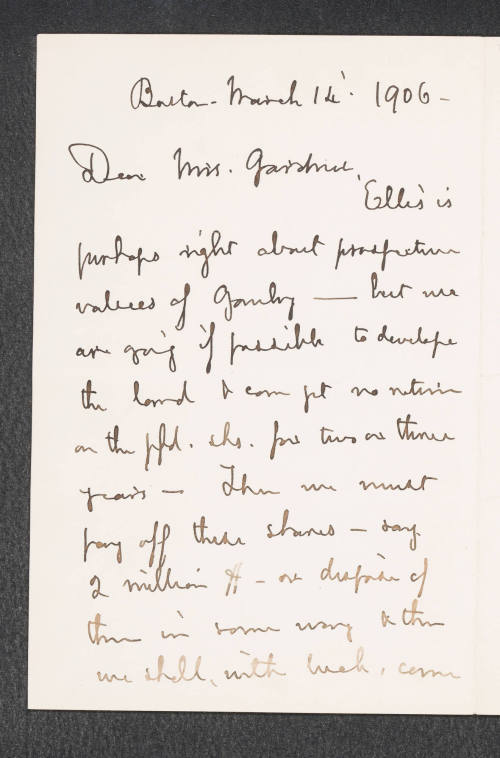 Boston - March 14'. 1906 -
Dear Mrs. Gardner,
Ellis is
perhaps right about prospective
values of - but we
are going if possible to develope
the land & can get no return
on the pfd. shs. for two or three
years - Then we must
pay off these shares - say
2 million $ - or dispose of
them in some way & then
we shall, with luck, come